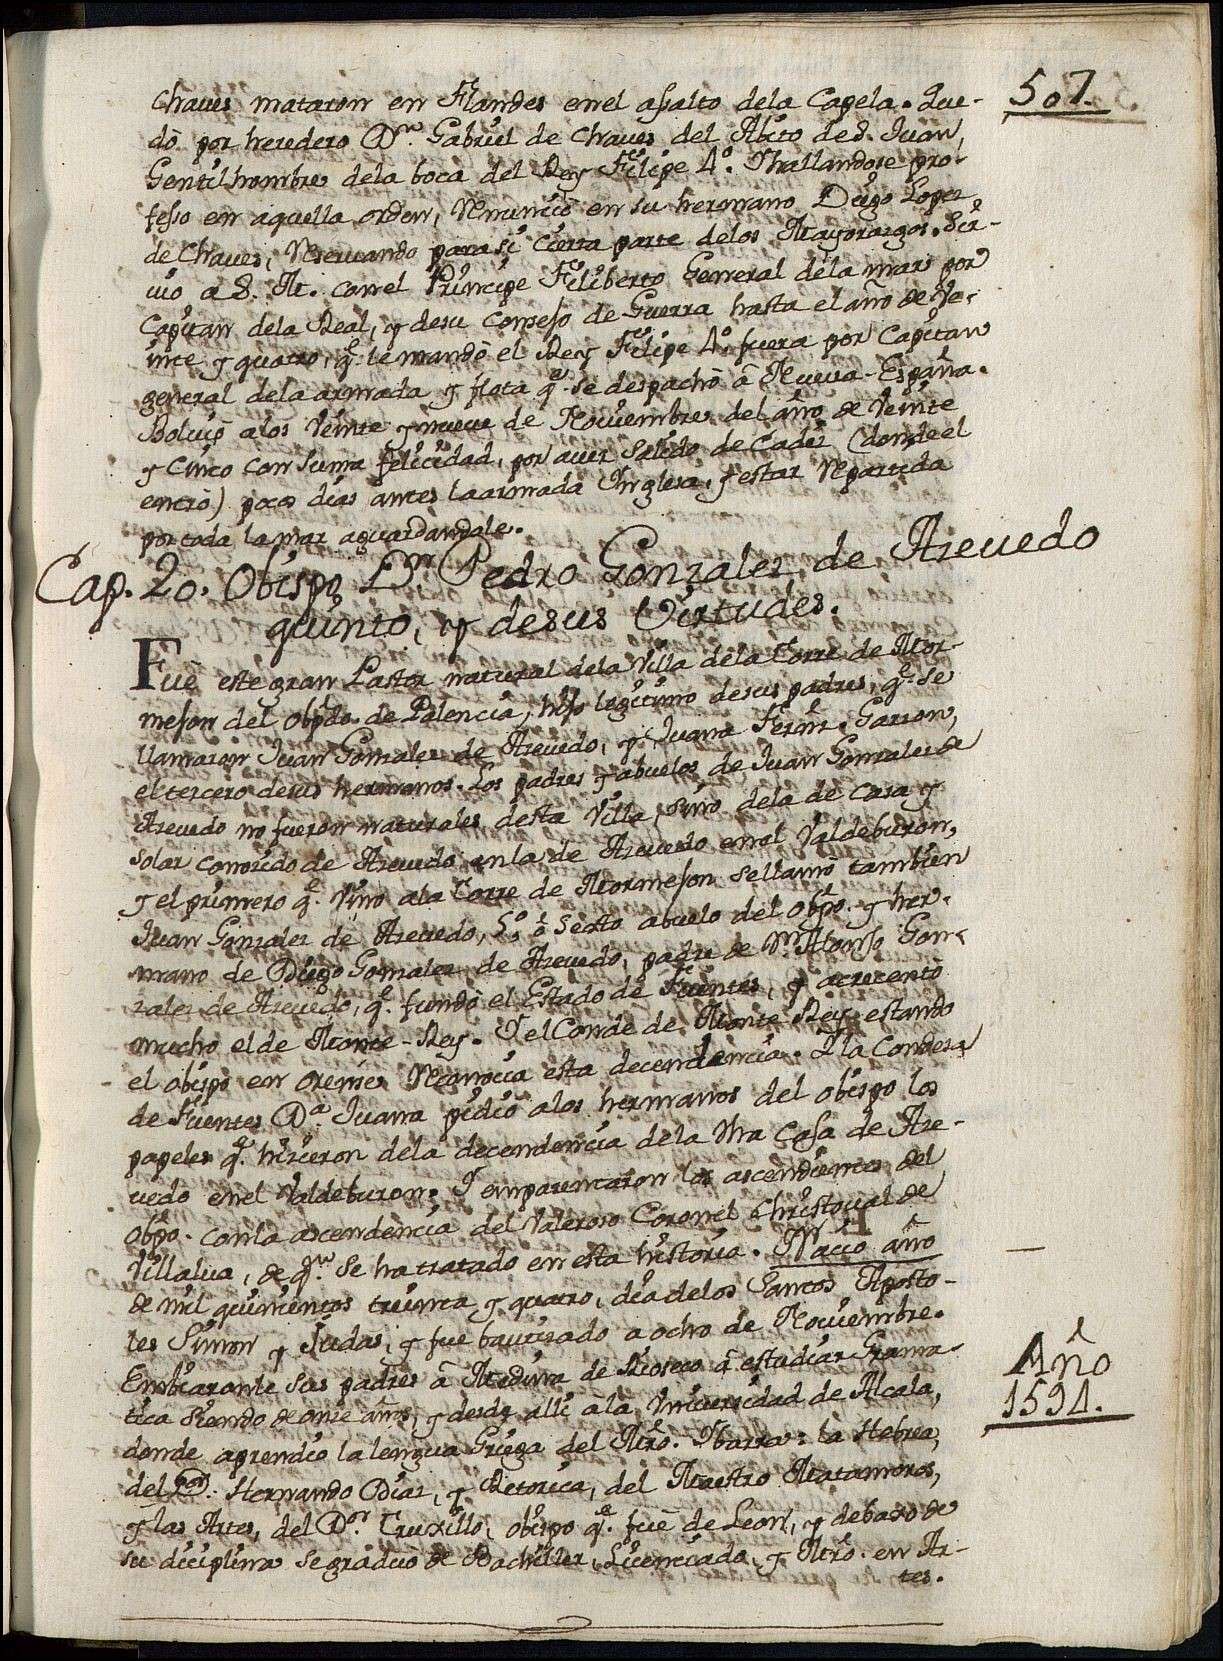 507.
Chaues mataron en Flandes enel assalto dela Capela. Que-
dò por heredero Dn. Gabriel de Chaues del Abito de S. Juan,
Gentilhombre dela boca del Rey Felipe 4º. Yhallandose pro-
fesso en aquella orden, Renunciò en su hermano Diego Lopez
de Chaues, Reseruando para sì Cierta parte delos Mayorazgos. Sir-
uio a S. M. conel Principe Filiberto General dela mar por
Capitan dela Real, y desu Consejo de Guerra hasta el año de Ve-
inte y quatro, q.e le mandò el Rey Felipe 4º. fuera por Capitan
general dela armada y flota q.e se despachò â Nueua-España.
Boluiò alos Veinte y nueue de Nouiembre del año de Veinte
y Cinco con suma felicidad, por auer Salido de Cadiz (donde el
entrò) pocos dias antes laarmada Inglesa, y estar Repartida
portoda lamar aguardandole.
Cap. 20. Obispo Dn Pedro Gonzalez de Azeuedo
quinto, y desus Virtudes.
Fuè este gran Pastor natural dela Villa dela Torre de Mor-
mejon del Obpdo. de Palencia, hijo legitimo desus padres, q.e se
llamaron Juan Gonzalez de Azeuedo, y Juana Fernz. Garzon,
el tercero desus hermanos. Los padres y abuelos de Juan Gonzalez de
Azeuedo no fueron naturales desta Villa, sino dela de Casa y
solar conocido de Azeuedo enla de Azeuedo enel Valdeburon,
y el primero q.e Vino ala Torre de Mormejon sellamò tambien
Juan Gonzalez de Azeuedo, 5º, ò Sexto abuelo del Obpo. y her-
mano de Diego Gonzalez de Azeuedo, padre de Dn. Alonso Gon-
zalez de Azeuedo, q.e fundò el Estado de Fuentes, y acrecentò
mucho el de Monte-Rey. Y el Conde de Monte Rey estando
el obispo en Orense Reconocia esta decendencia. Y la Condesa
de Fuentes Da. Juana pidiò alos hermanos del obispo los
papeles q.e hizieron dela decendencia dela Nra Casa de Aze-
uedo enel Valdeburon. Y emparentaron los ascendientes del
Obpo. conla ascendencia del Valeroso Coronel Christoual de
Villalua, de q.n se ha tratado en esta historia. Naciò año
de mil quinientos treinta y quatro, dia delos Santos Aposto-
les Simon y Judas, y fue bautizado a ocho de Nouiembre.
Embiaronle sus padres â Medina de Rioseco â estudiar Grama-
tica siendo de onze años, y desde alli âla Vniuersidad de Alcala,
donde aprendio la lengua Griega del Mro. Ybarra: la Hebrea,
del Hernando Diaz, y Retorica, del Maestro Matamoros,
y las Artes, del Dor. Truxillo, obispo q.e fuè de Leon, y debaxo de
su diciplina segraduò de Bachiller, Licenciado, y Mro. en Ar-
tes.
Año
1534.